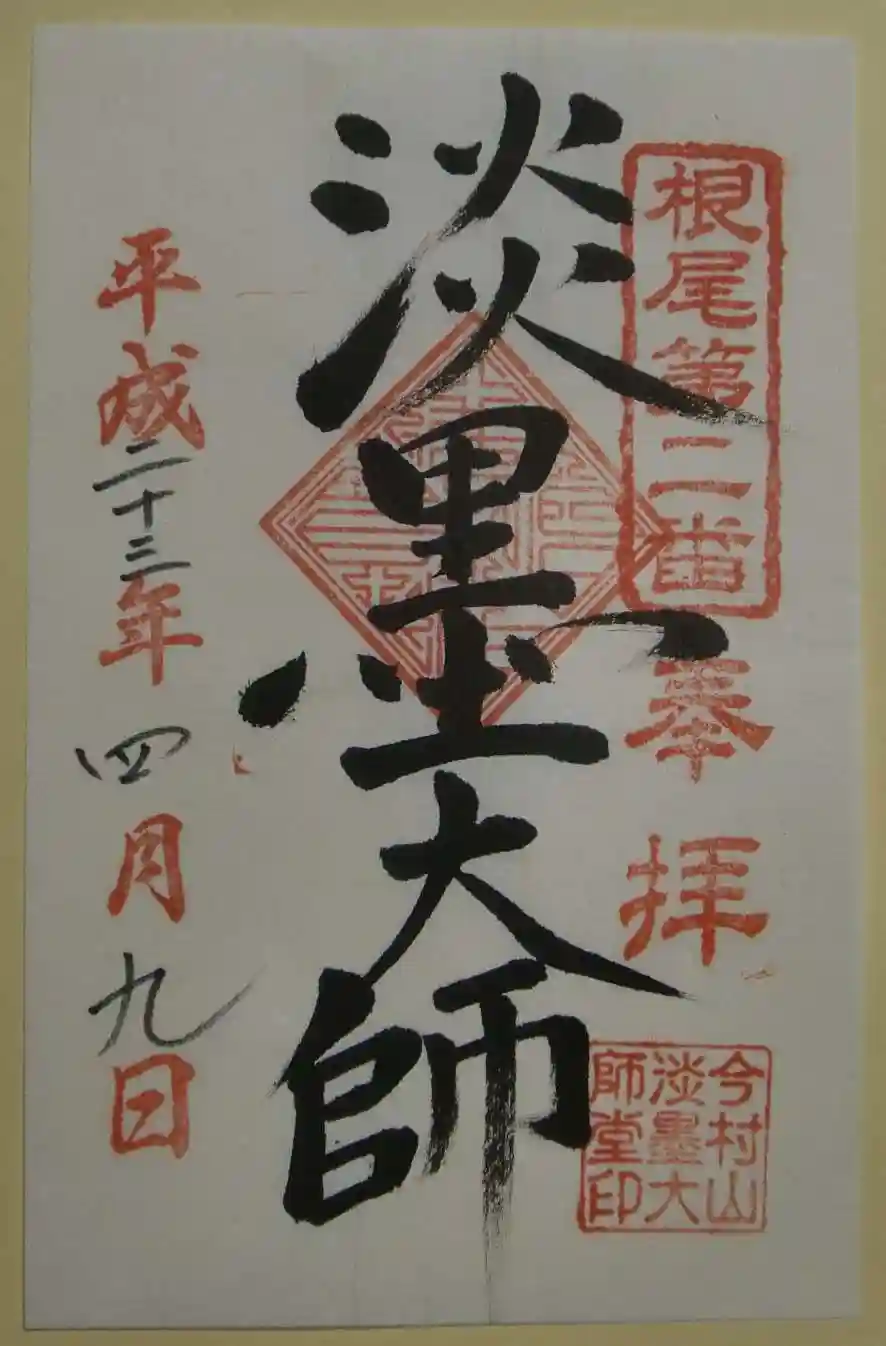 根尾第二番
奉拝
今村山
淡墨大
師堂印
淡墨大師
平成二十三年四月九日